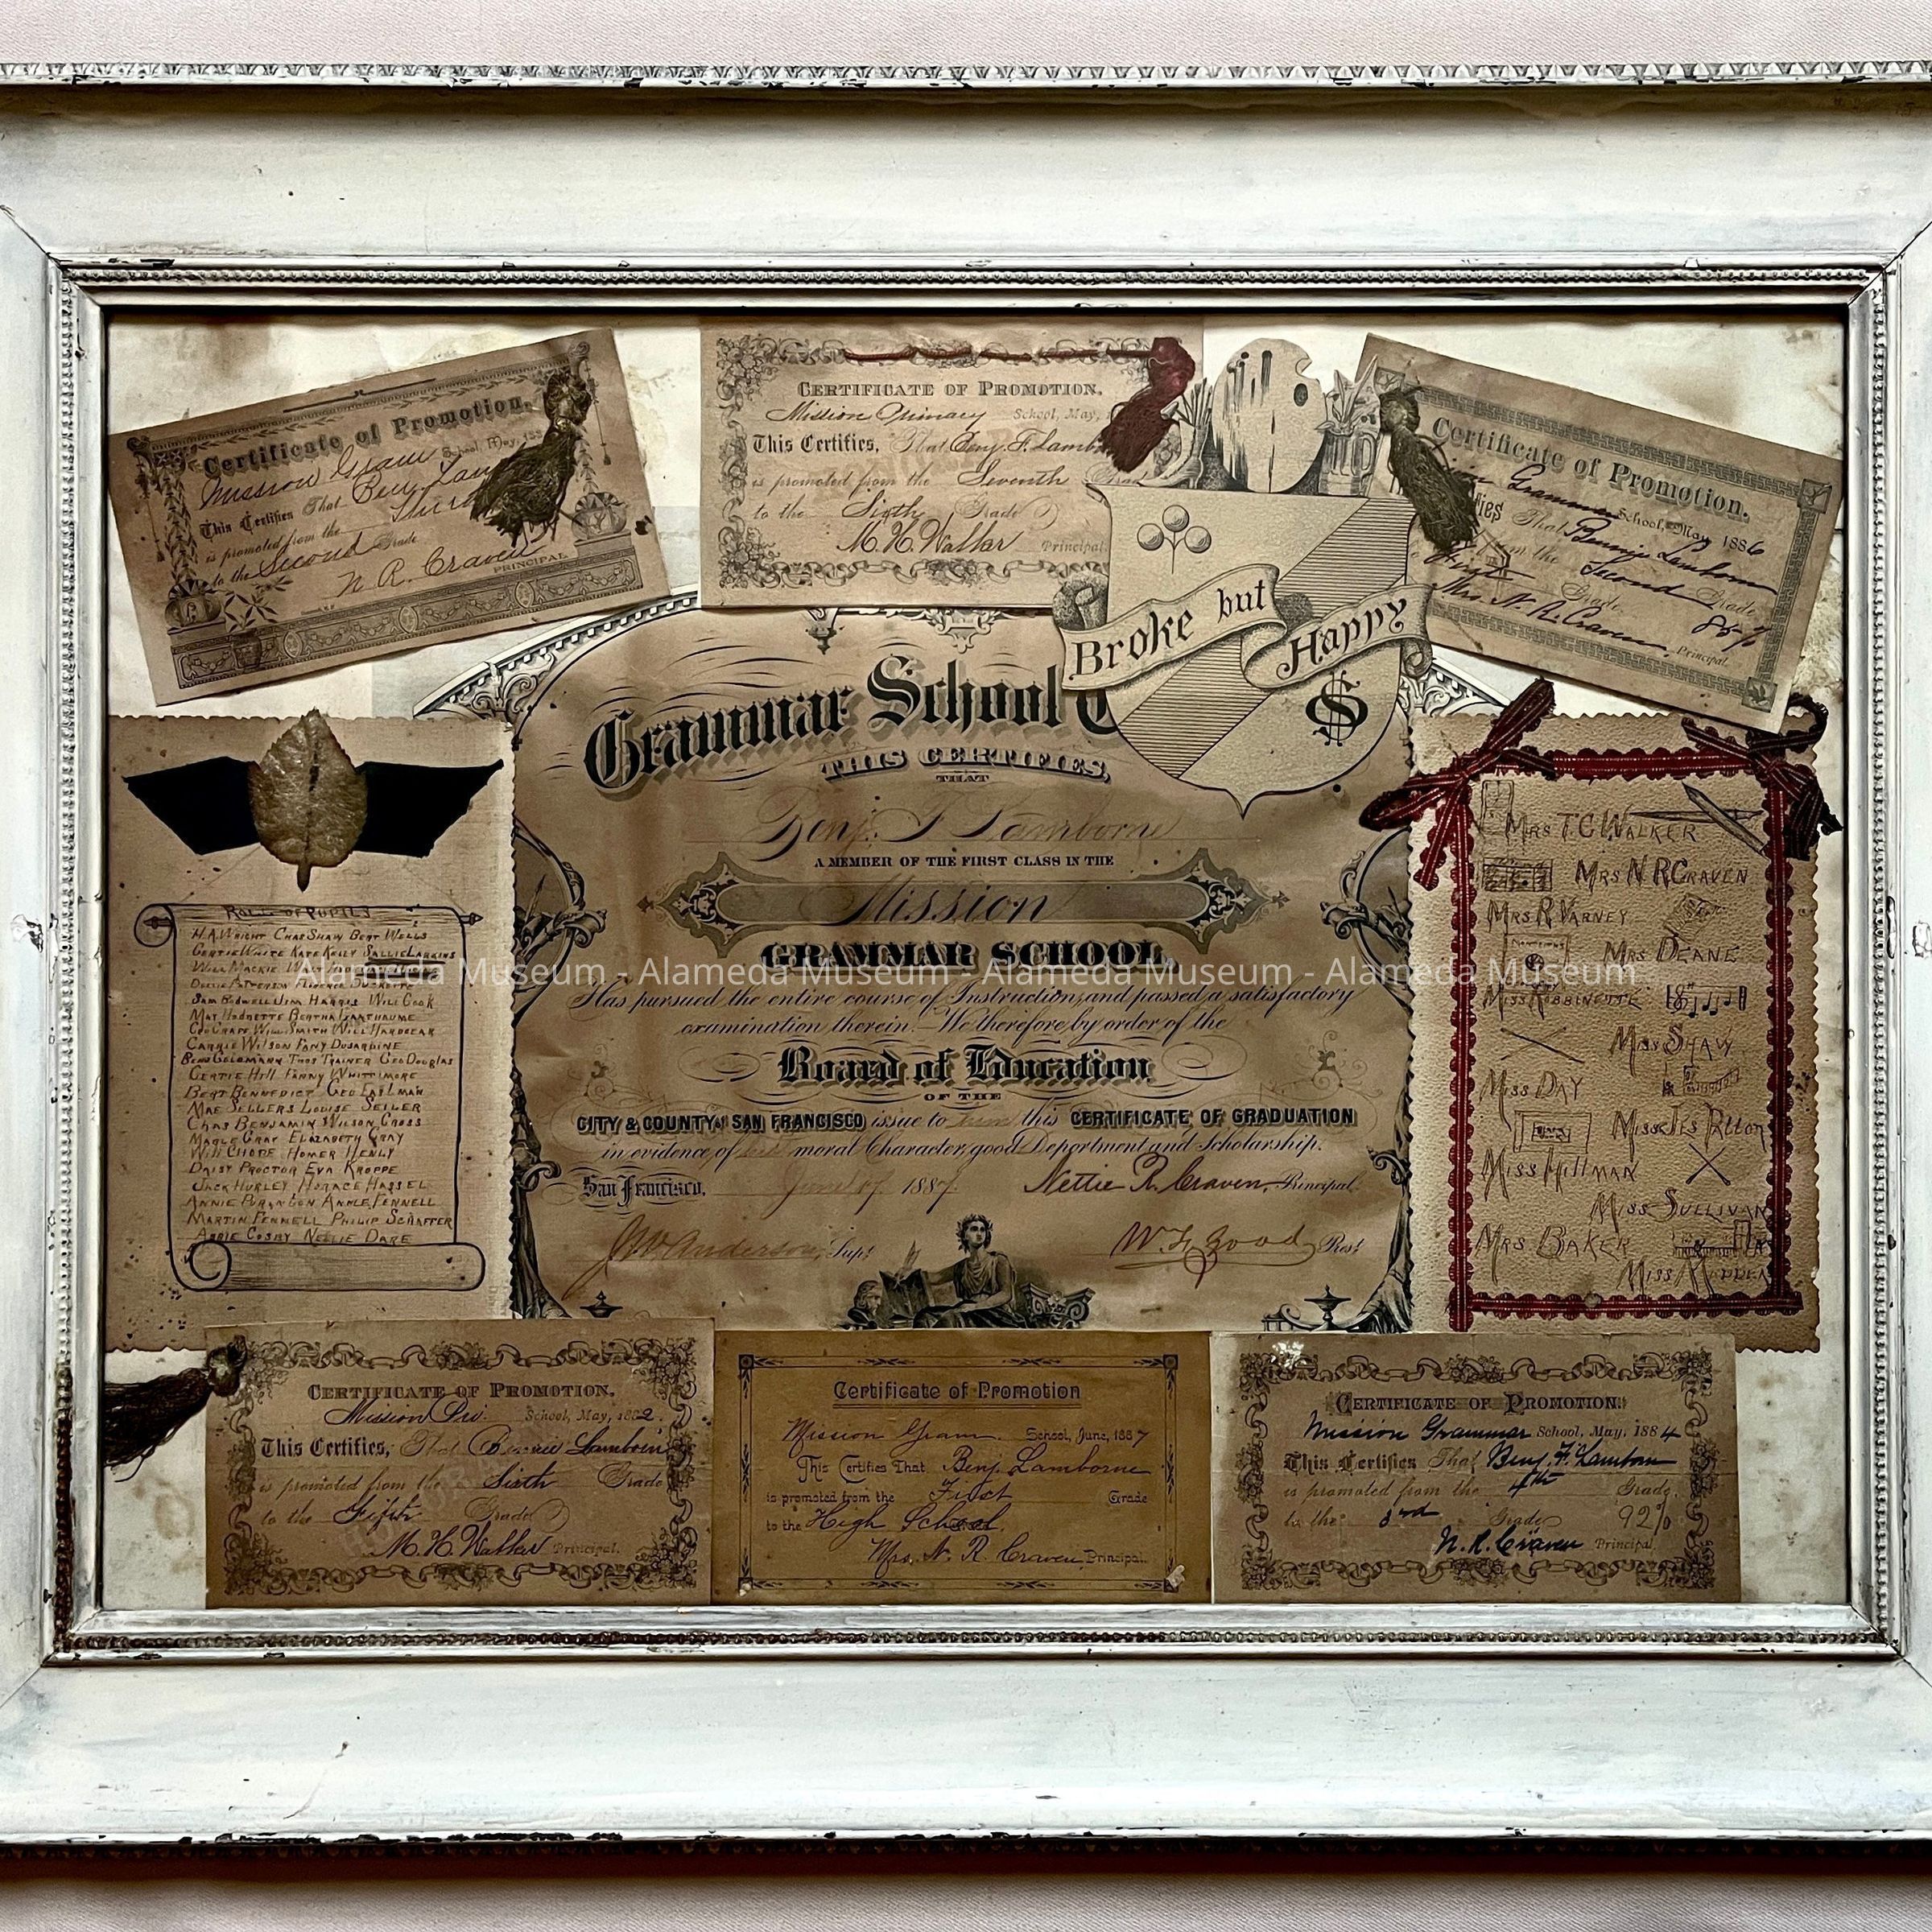 Certificate of Promotion.
Mission Gram School, May, 188
This Certifies That Benj. Lam
is promoted from the Third
to the Second Grade
N. R. Craven PRINCIPAL
CERTIFICATE OF PROMOTION.
Mission Primary School, May,
This Certifies, That Benj. F. Lamb
is promoted from the Seventh Grad
to the Sixth Grade
M. H. Walker Principal
Broke but Happy
$
Certificate of Promotion.
Grammar School, May 1886
ies That Bennie Lamborn
from the Second Grade
First Grade
Mrs. N. R. Craven 85%
Principal
Grammar School C
THIS CERTIFIES,
THAT
Benj. F. Lamborne
A MEMBER OF THE FIRST CLASS IN THE
Mission
GRAMMAR SCHOOL,
Has pursued the entire course of Instruction, and passed a satisfactory
examination therein. We therefore, by order of the
Board of Education
OF THE
CITY & COUNTY OF SAN FRANCISCO issue to him this CERTIFICATE OF GRADUATION
in evidence of his moral Character, good Deportment and Scholarship.
San Francisco, June 1887. Nettie R. Craven, Principal
J. W. Anderson, Supt W. F. Good Prest
ROLL OF PUPILS
H.A. WRIGHT CHAS SHAW BERT WELLS
GERTIE WHITE KATE KELLY SALLIE LARKINS
WILL MACKIE
DOLLIE PATTERSON FLORENCE
SAM BIDWELL JIM HARRIS WILL COOK
MAY HODNETTE BERTHA
GEO CRAFT WILL SMITH WILL
CARRIE WILSON FANY DUJARDINE
BENJ GOLDMANN THOS TRAINER GEO DOUGLAS
GERTIE HILL FANNY WHITTIMORE
BERT BENNEDICT GEO EASTMAN
MAE SELLERS LOUISE SEILER
CHAS BENJAMIN WILSON CROSS
MABLE GRAY ELIZABETH GRAY
WILL CHOPE HOMER HENLY
DAISY PROCTOR EVA KROPPE
JACK HURLEY HORACE HASSEL
ANNIE ANNIE FENNELL
MARTIN FENNELL PHILIP SCHAFFER
ADDIE COSBY NELLIE DARE
MRS T.C. WALKER
MRS N R CRAVEN
MRS R VARNEY
MRS DEANE
MISS ROBBINETTE
MISS SHAW
MISS DAY
MISS
MISS HILLMAN
MISS SULLIVAN
MRS BAKER
MISS
Alameda Museum - Alameda Museum - Alameda Museum - Alameda Museum
CERTIFICATE OF PROMOTION.
Mission Pri. School, May, 1882.
This Certifies, That Bennie Lamborn
is promoted from the Sixth Grade
to the Fifth Grade
M. H. Walker Principal.
Certificate of Promotion
Mission Gram. School, June, 1887
This Certifies That Benj. Lamborne
is promoted from the First Grade
to the High School.
Mrs. N. R. Craven Principal.
CERTIFICATE OF PROMOTION.
Mission Grammar School, May, 1884
This Certifies That Benj. F. Lamborn
is promoted from the 4th Grade
to the 3rd Grade 92%
N. R. Craven Principal.